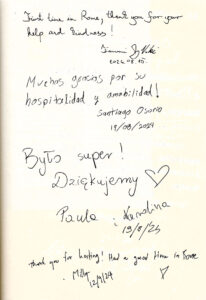 First time in Rome, thank you for your
help and kindness!
2024.08.15.
Muchas gracias por su
hospitalidad y amabilidad!
Santiago Osorio
18/08/2024
Było super!
Dziękujemy ♡
Paula i Karolina
19/8/24
thank you for hosting! Had a good time in Rome
- Milly 12/9/24 ♡